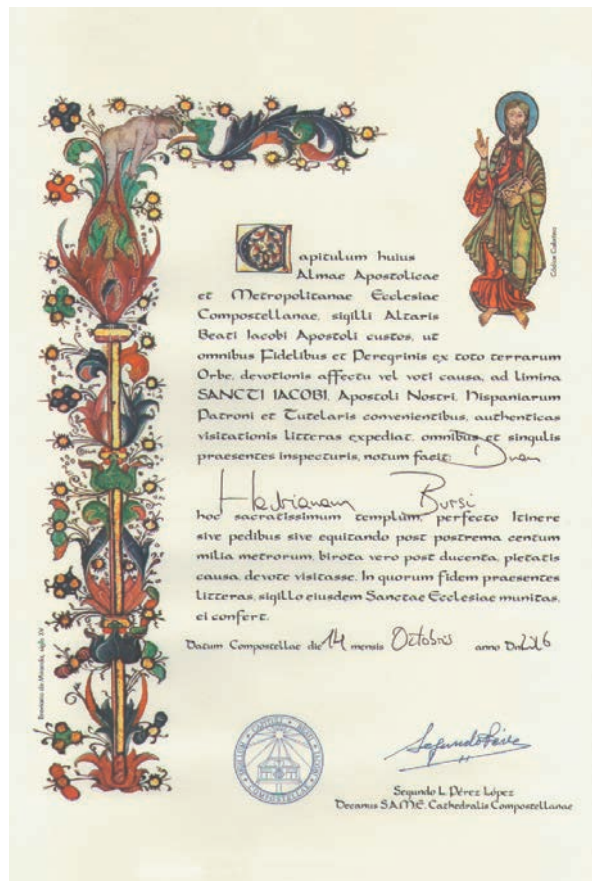 Capitulum huius
Almae Apostolicae
et Metropolitanae Ecclesiae
Compostellanae, sigilli Altaris
Beati Iacobi Apostoli custos, ut
omnibus Fidelibus et Peregrinis ex toto terrarum
Orbe, devotionis affectu vel voti causa, ad limina
SANCTI IACOBI, Apostoli Nostri, Hispaniarum
Patroni et Tutelaris convenientibus, authenticas
visitationis litteras expediat, omnibus et singulis
praesentes inspecturis, notum facit: Dnam
Hadrianam Bursi
hoc sacratissimum templum, perfecto Itinere
sive pedibus sive equitando post postrema centum
milia metrorum, birota vero post ducenta, pietatis
causa, devote visitasse. In quorum fidem praesentes
litteras, sigillo eiusdem Sanctae Ecclesiae munitas,
ei confert.
Datum Compostellae die 14 mensis Octobris anno Dni 2016
Segundo L. Pérez López
Decanus S.A.M.E. Cathedralis Compostellanae
Códice Calixtino
Breviario de Miranda, siglo XV